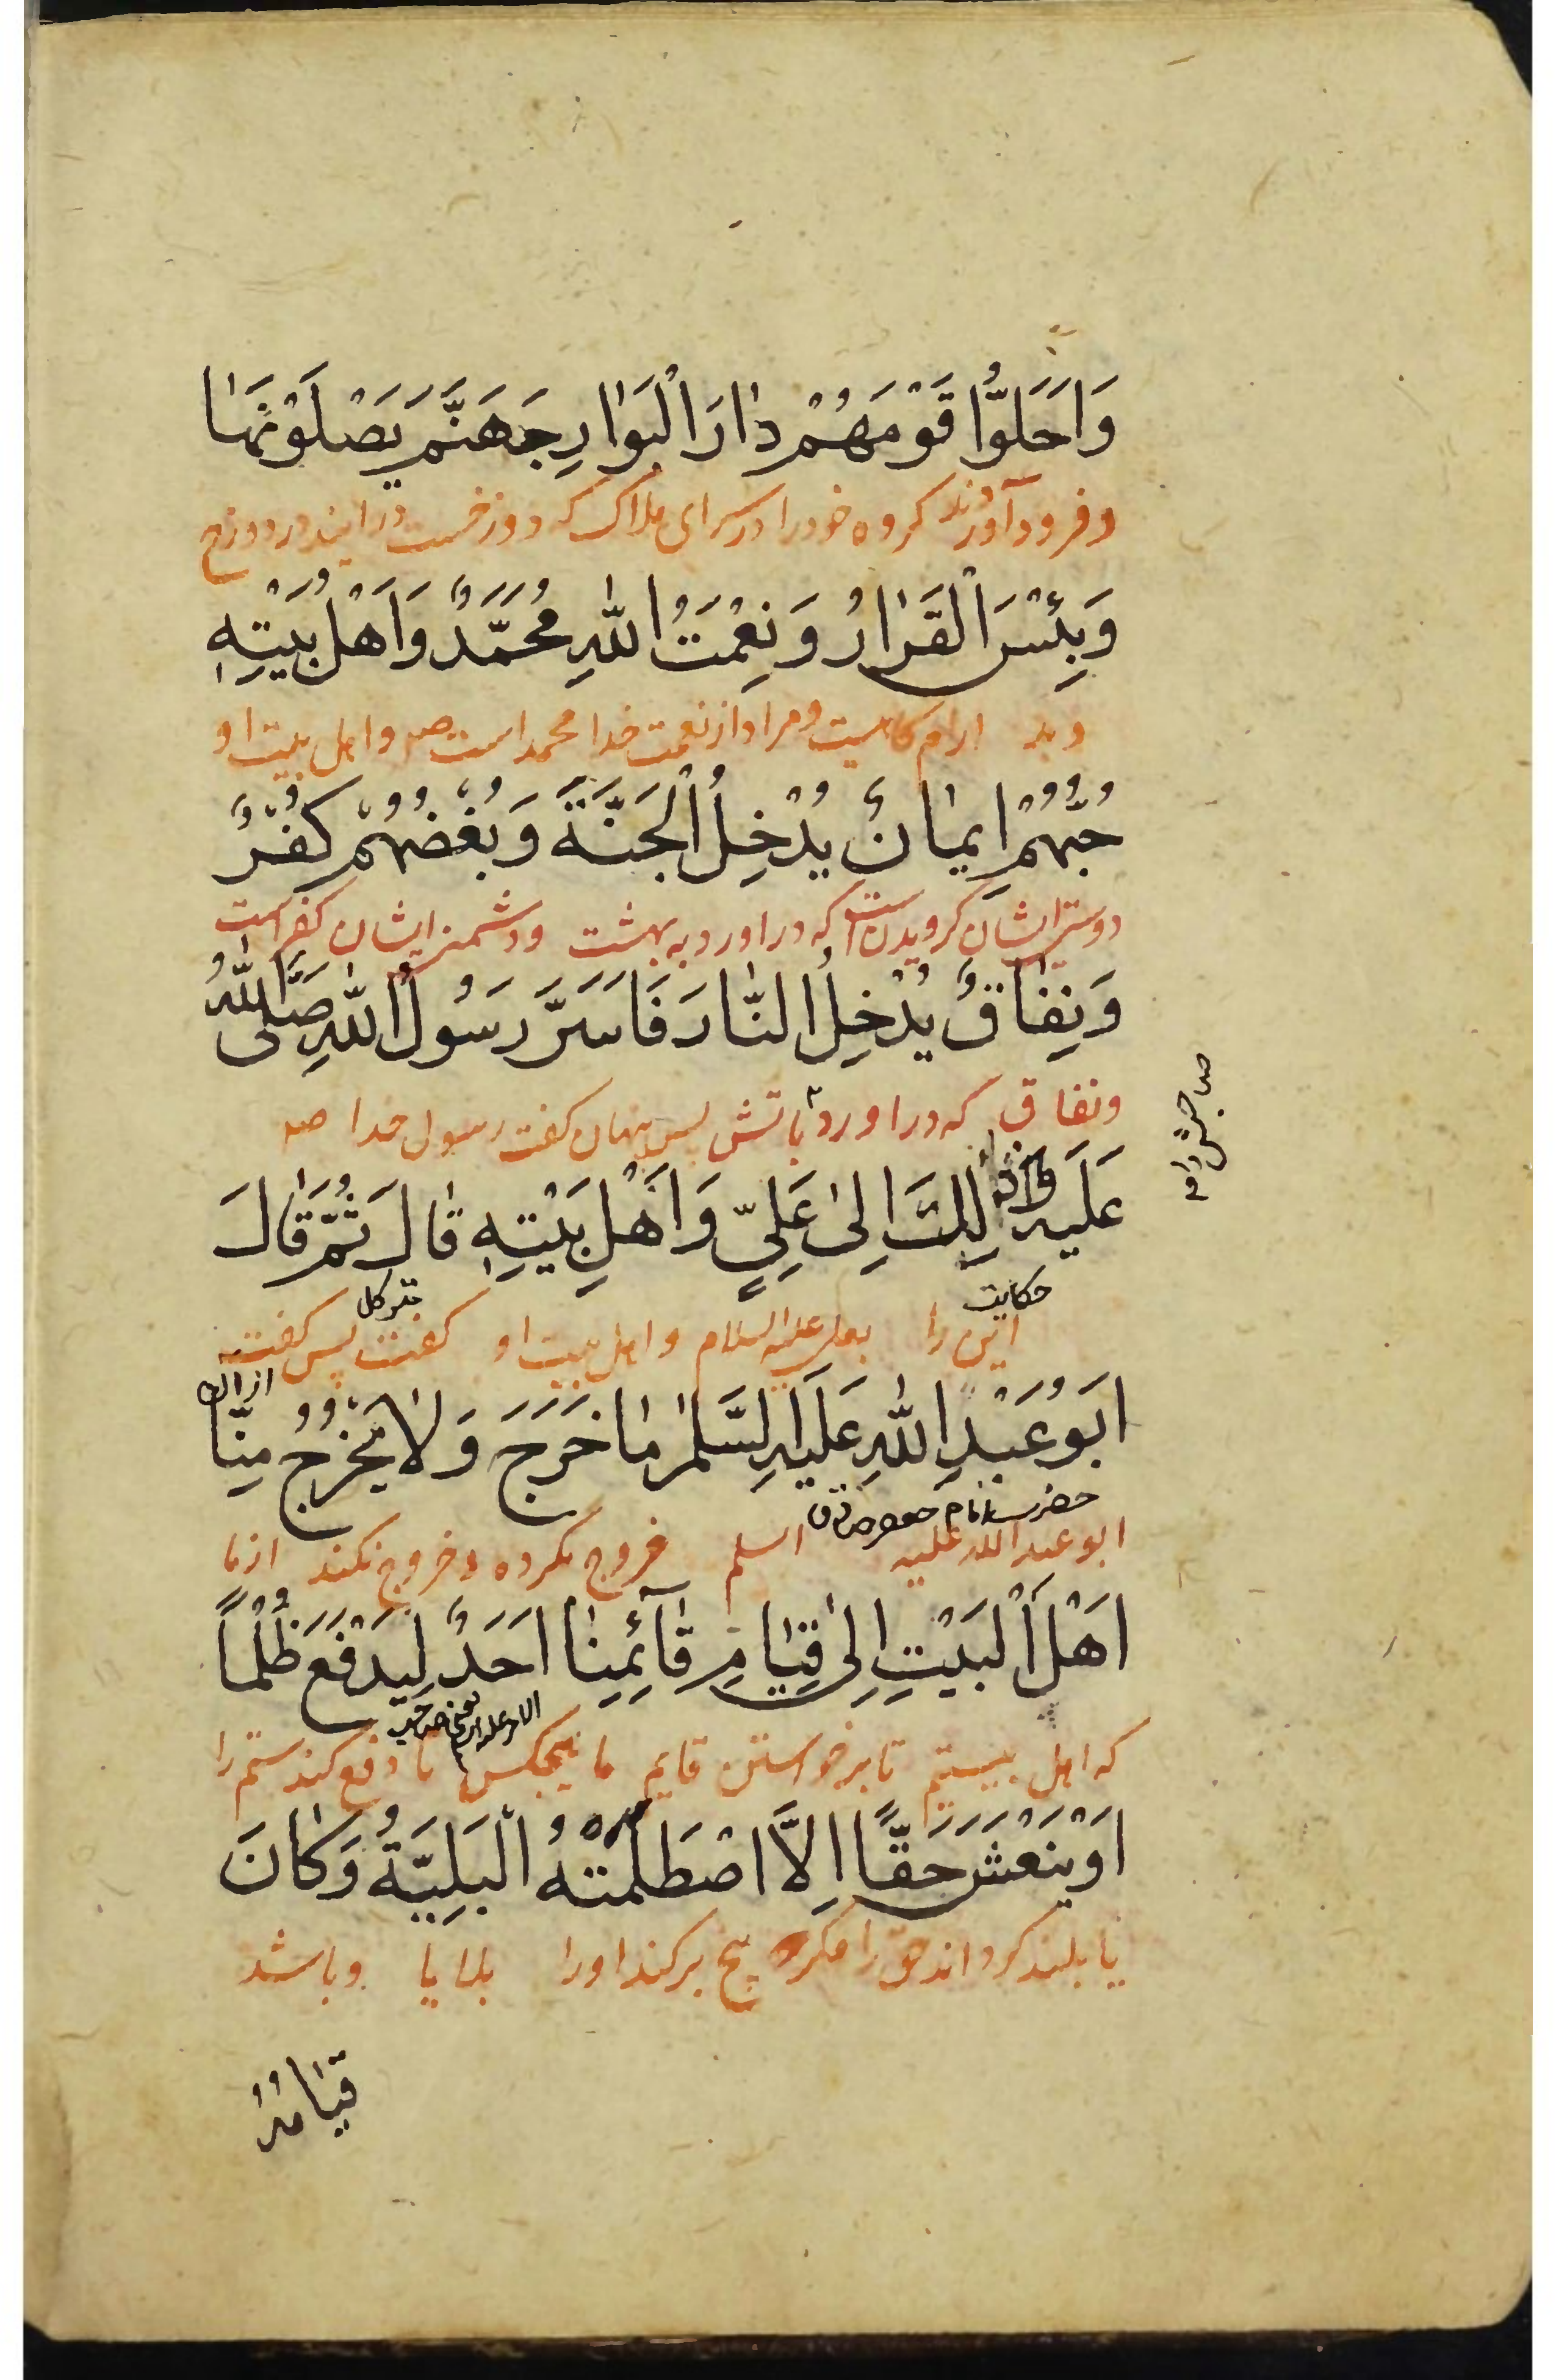 وَاَحَلُّوا قَوْمَهُمْ دَارَ الْبَوَارِ جَهَنَّمَ يَصْلَوْنَهَا
و فرود آوردند کروه خود را در سرای هلاک که دوزخست درایند در دوزخ
وَبِئْسَ الْقَرَارُ وَنِعْمَتُ اللّٰهِ مُحَمَّدٌ وَاَهْلُ بَيْتِهِ
و بد ارام کاهیست و مراد از نعمت خدا محمد است صه و اهل بیت او
حُبُّهُمْ اِيمَانٌ يُدْخِلُ الْجَنَّةَ وَبُغْضُهُمْ كُفْرٌ
دوستی ایشان کرویدن است که در اورد به بهشت و دشمنی ایشان کفر است
وَنِفَاقٌ يُدْخِلُ النَّارَ فَاَسَرَّ رَسُولُ اللّٰهِ صَلَّى اللّٰهُ
و نفاق که در اورد باتش پس پنهان کفت رسول خدا صه
عَلَيْهِ وَآلِهِ ذٰلِكَ اِلٰى عَلِيٍّ وَاَهْلِ بَيْتِهِ قَالَ ثُمَّ قَالَ
حکایت
این را بعلی علیه السلام و اهل بیت او کفت پس کفت
اَبُو عَبْدِ اللّٰهِ عَلَيْهِ السَّلٰمُ مَا خَرَجَ وَلَا يَخْرُجُ مِنَّا
حضرت امام جعفر صادق
ابو عبد الله علیه السلم خروج نکرده و خروج نکند از ما
اَهْلَ الْبَيْتِ اِلٰى قِيَامِ قَآئِمِنَا اَحَدٌ لِيَدْفَعَ ظُلْمًا
که اهل بیتیم تا برخواستن قایم ما هیچکس تا دفع کند ستم را
اَوْ يَنْعَشَ حَقًّا اِلَّا اصْطَلَمَتْهُ الْبَلِيَّةُ وَكَانَ
یا بلند کرداند حق را مکر بیخ برکند او را بلایا و باشد
قِيَامُهُ